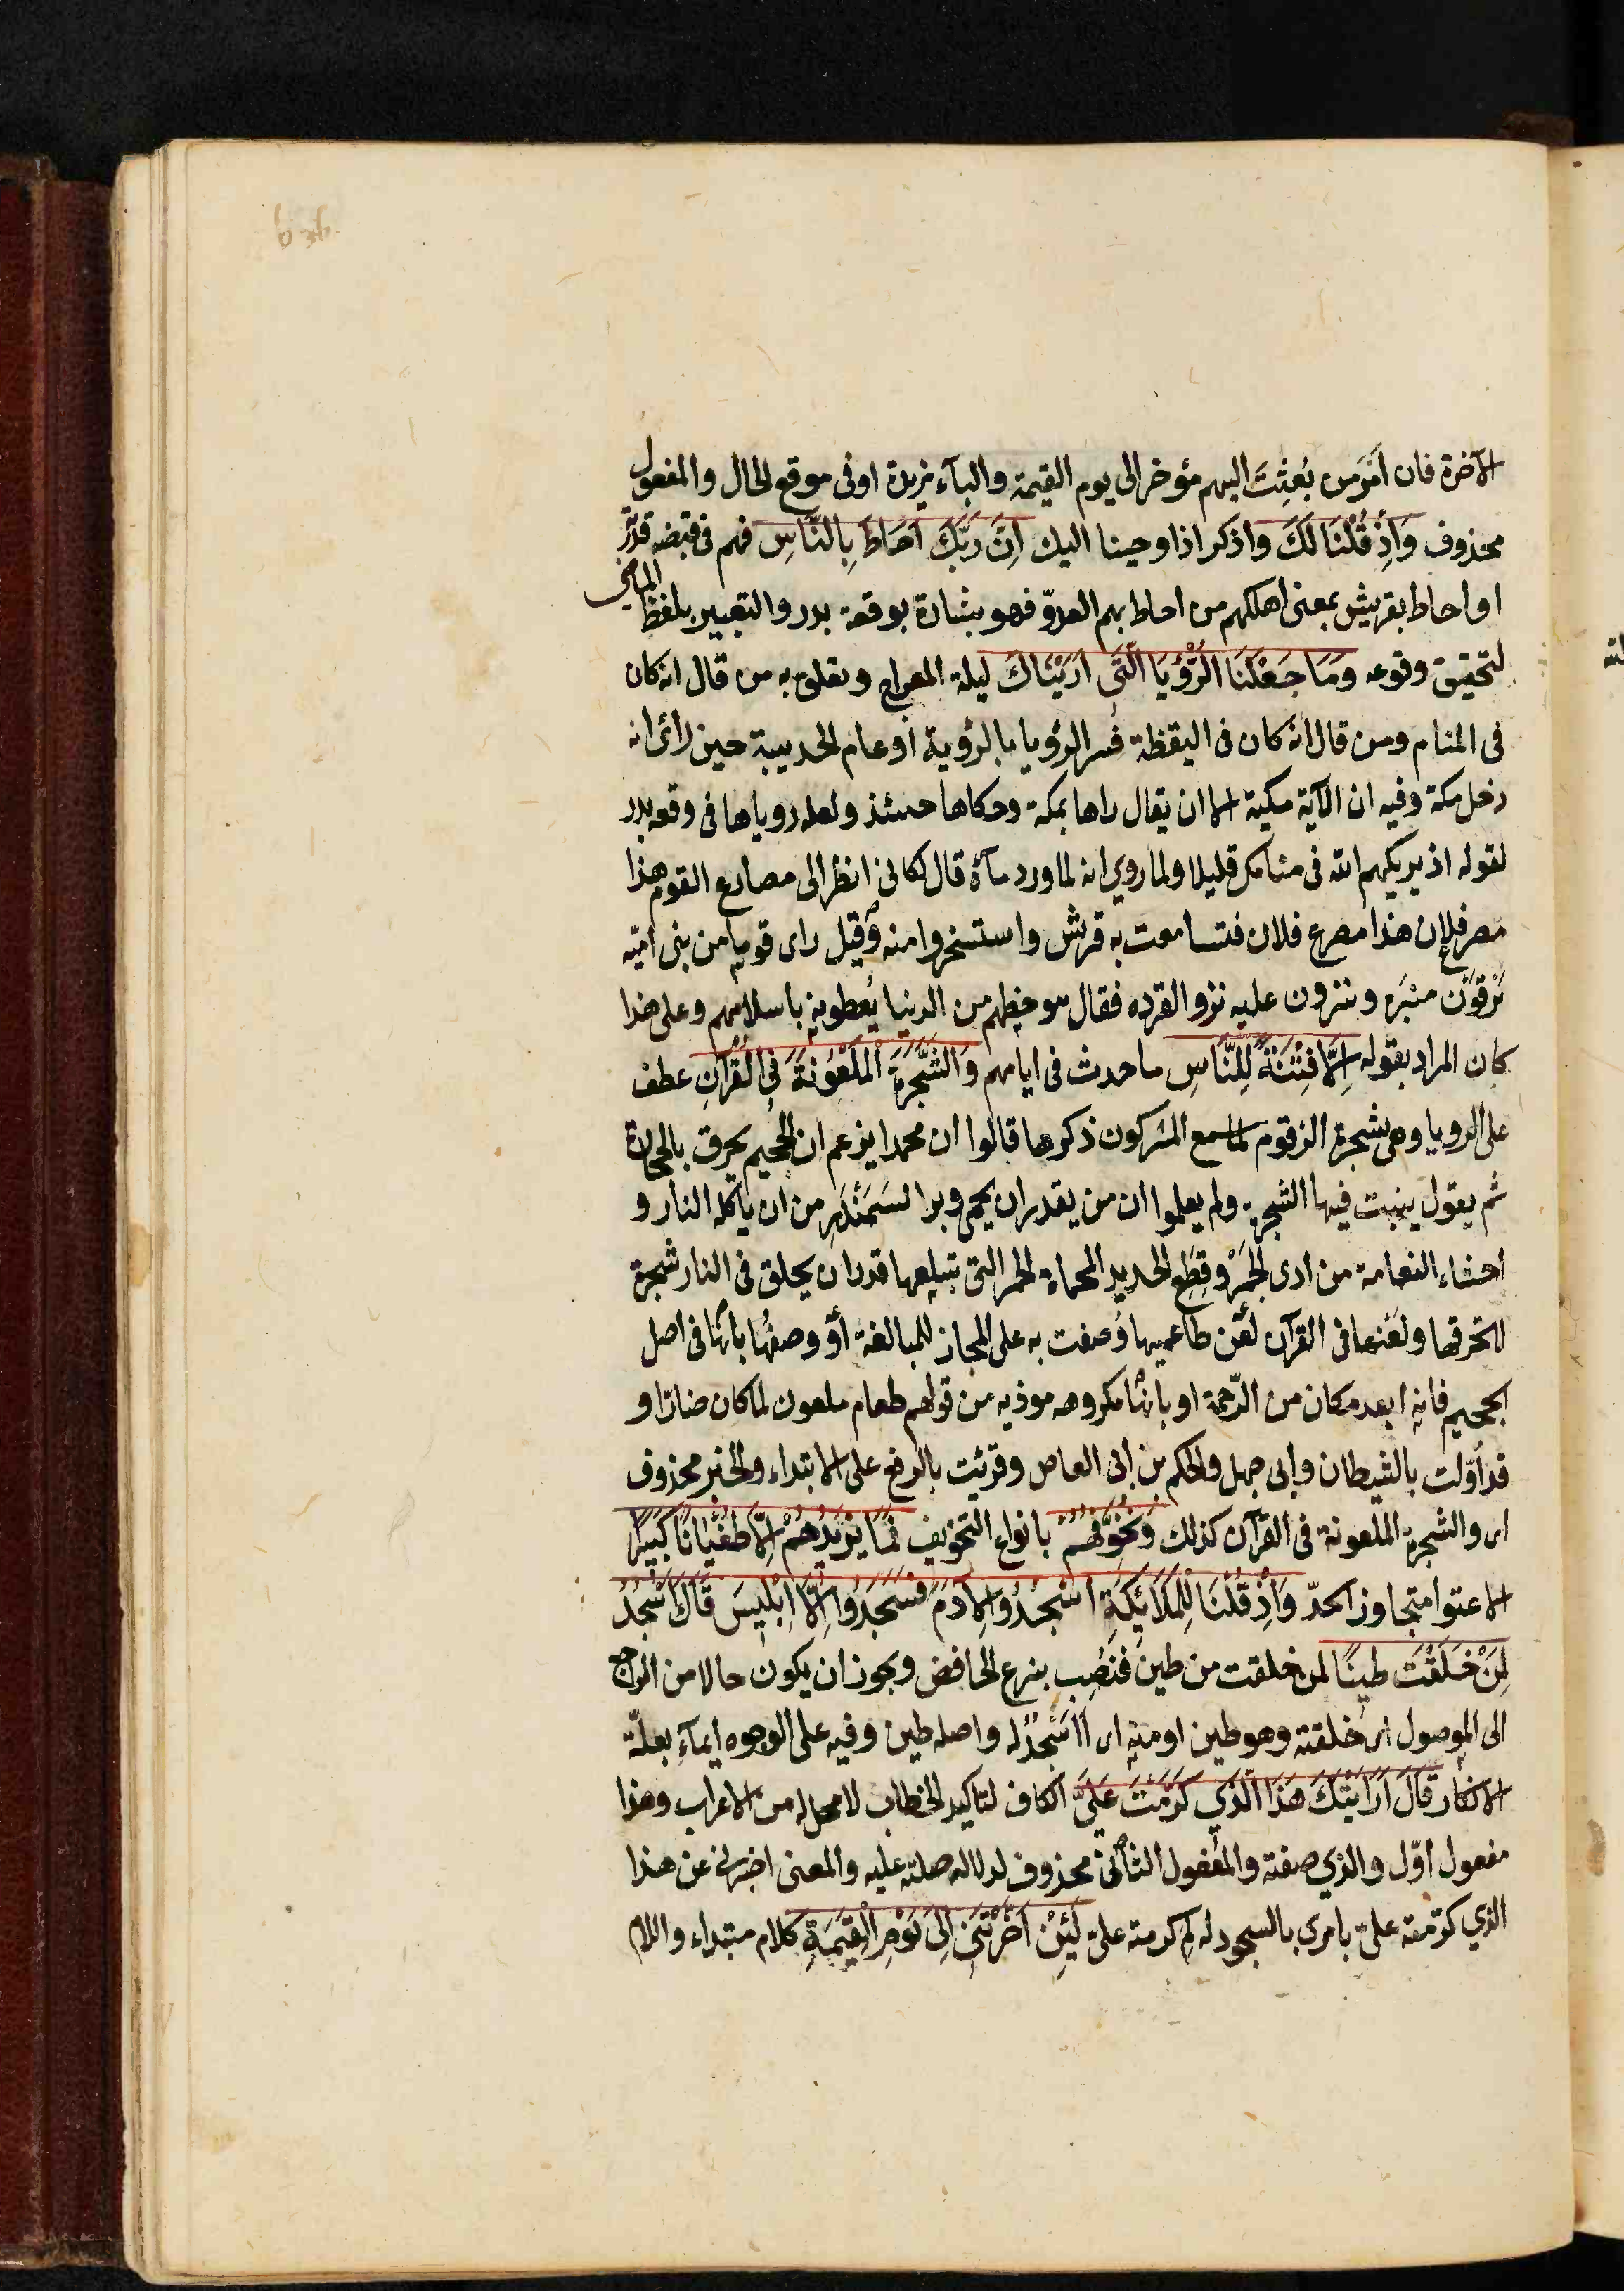 الآخرة فان امر من بُعِثتَ اليهم مؤخر الى يوم القيمة والبآء مزيدة او فى موقع الحال والمفعول
محذوف وَاِذْ قُلْنَا لَكَ واذكر اذ اوحينا اليك اِنَّ رَبَّكَ اَحَاطَ بِالنَّاسِ فهم فى قبضة قدرته
او احاط بقريش بمعنى اهلكهم من احاط بهم العدوّ فهو بشارة بوقعة بدر والتعبير بلفظ الماضى
لتحقيق وقوعه وَمَا جَعَلْنَا الرُّؤْيَا الَّتى اَرَيْنَاكَ ليلة المعراج وتعلق به من قال انه كان
فى المنام ومن قال انه كان فى اليقظة فسر الرؤيا بالرؤية او عام الحديبية حين رائ انه
دخل مكة وفيه ان الآية مكية الا ان يقال راها بمكة وحكاها حينئذ ولعله رويا رآها فى وقعة بدر
لقوله اذ يريكهم الله فى منامك قليلا ولما روي انه لما ورد مآءه قال لكانى انظر الى مصارع القوم هذا
مصرع فلان هذا مصرع فلان فتسامعت به قريش واستسخروا منه وقيل راى قوما من بنى اميّه
يَرْقَوْن منبره وينزون عليه نزو القرده فقال هو حظهم من الدنيا يُعطونه باسلامهم وعلى هذا
كان المراد بقوله اِلَّا فِتْنَةً لِلنَّاسِ ما حدث فى ايامهم وَالشَّجَرَةَ الْمَلْعُونَةَ فِى الْقُرْآنِ عطف
على الرويا وهى شجرة الزقوم لما سمع المشركون ذكرها قالوا ان محمدا يزعم ان الجحيم يحرق بالحجارة
ثم يقول ينبت فيها الشجرة ولم يعلموا ان من يقدر ان يحمى وبر السَمَنْدَر من ان ياكله النار و
احشاء النعامة من اذى الجَمْر وقِطَع الحديد المحماة الحمر التى تبتلعها قدر ان يخلق فى النار شجرة
لا تحرقها ولَعْنها فى القرآن لَعْن طاعميها وُصفت به على المجاز للمبالغة او وصفُها بانّها فى اصل
الجحيم فانه ابعد مكان من الرّحمة او بانها مكروهه موذيه من قولهم طعام ملعون لما كان ضارّا و
قد اُوّلت بالشيطان وابى جهل والحكم بن ابى العاص وقرئت بالرفع على الابتداء والخبر محذوف
اى والشجرة الملعونة فى القرآن كذلك وَنُخَوِّفُهُمْ بانواع التخويف فَمَا يَزِيدُهُمْ اِلَّا طُغْيَانًا كَبِيرًا
الا عتوا متجاوز الحدّ وَاِذْ قُلْنَا لِلْمَلَائِكَةِ اسْجُدُوا لِآدَمَ فَسَجَدُوا اِلَّا اِبْلِيسَ قَالَ ءَاَسْجُدُ
لِمَنْ خَلَقْتَ طينًا لمن خلقت من طين فَنُصِب بنزع الخافض ويجوز ان يكون حالا من الراجع
الى الموصول اى خلقته وهو طين او منه اى أأسجُدُ له واصله طين وفيه على الوجوه ايماء بعلّة
الانكار قَالَ اَرَاَيْتَكَ هَذَا الَّذى كَرَّمْتَ عَلَىَّ الكاف لتاكيد الخطاب لا محل له من الاعراب وهذا
مفعول اوّل والذي صفته والمفعول الثانى محذوف لدلالة صلته عليه والمعنى اخبرنى عن هذا
الذي كرّمته علىّ بامرى بالسجود له لم كرمته علىّ لَئِنْ اَخَّرْتَنِ اِلَى يَوْمِ الْقِيَمَةِ كلام مبتداء واللام